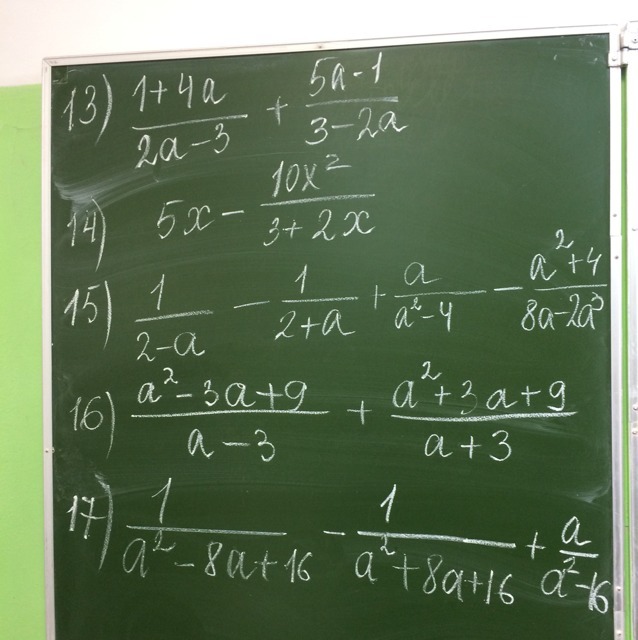 13) \frac{1+4a}{2a-3} + \frac{5a-1}{3-2a}
14) 5x - \frac{10x^2}{3+2x}
15) \frac{1}{2-a} - \frac{1}{2+a} + \frac{a}{a^2-4} - \frac{a^2+4}{8a-2a^3}
16) \frac{a^2-3a+9}{a-3} + \frac{a^2+3a+9}{a+3}
17) \frac{1}{a^2-8a+16} - \frac{1}{a^2+8a+16} + \frac{a}{a^2-16}